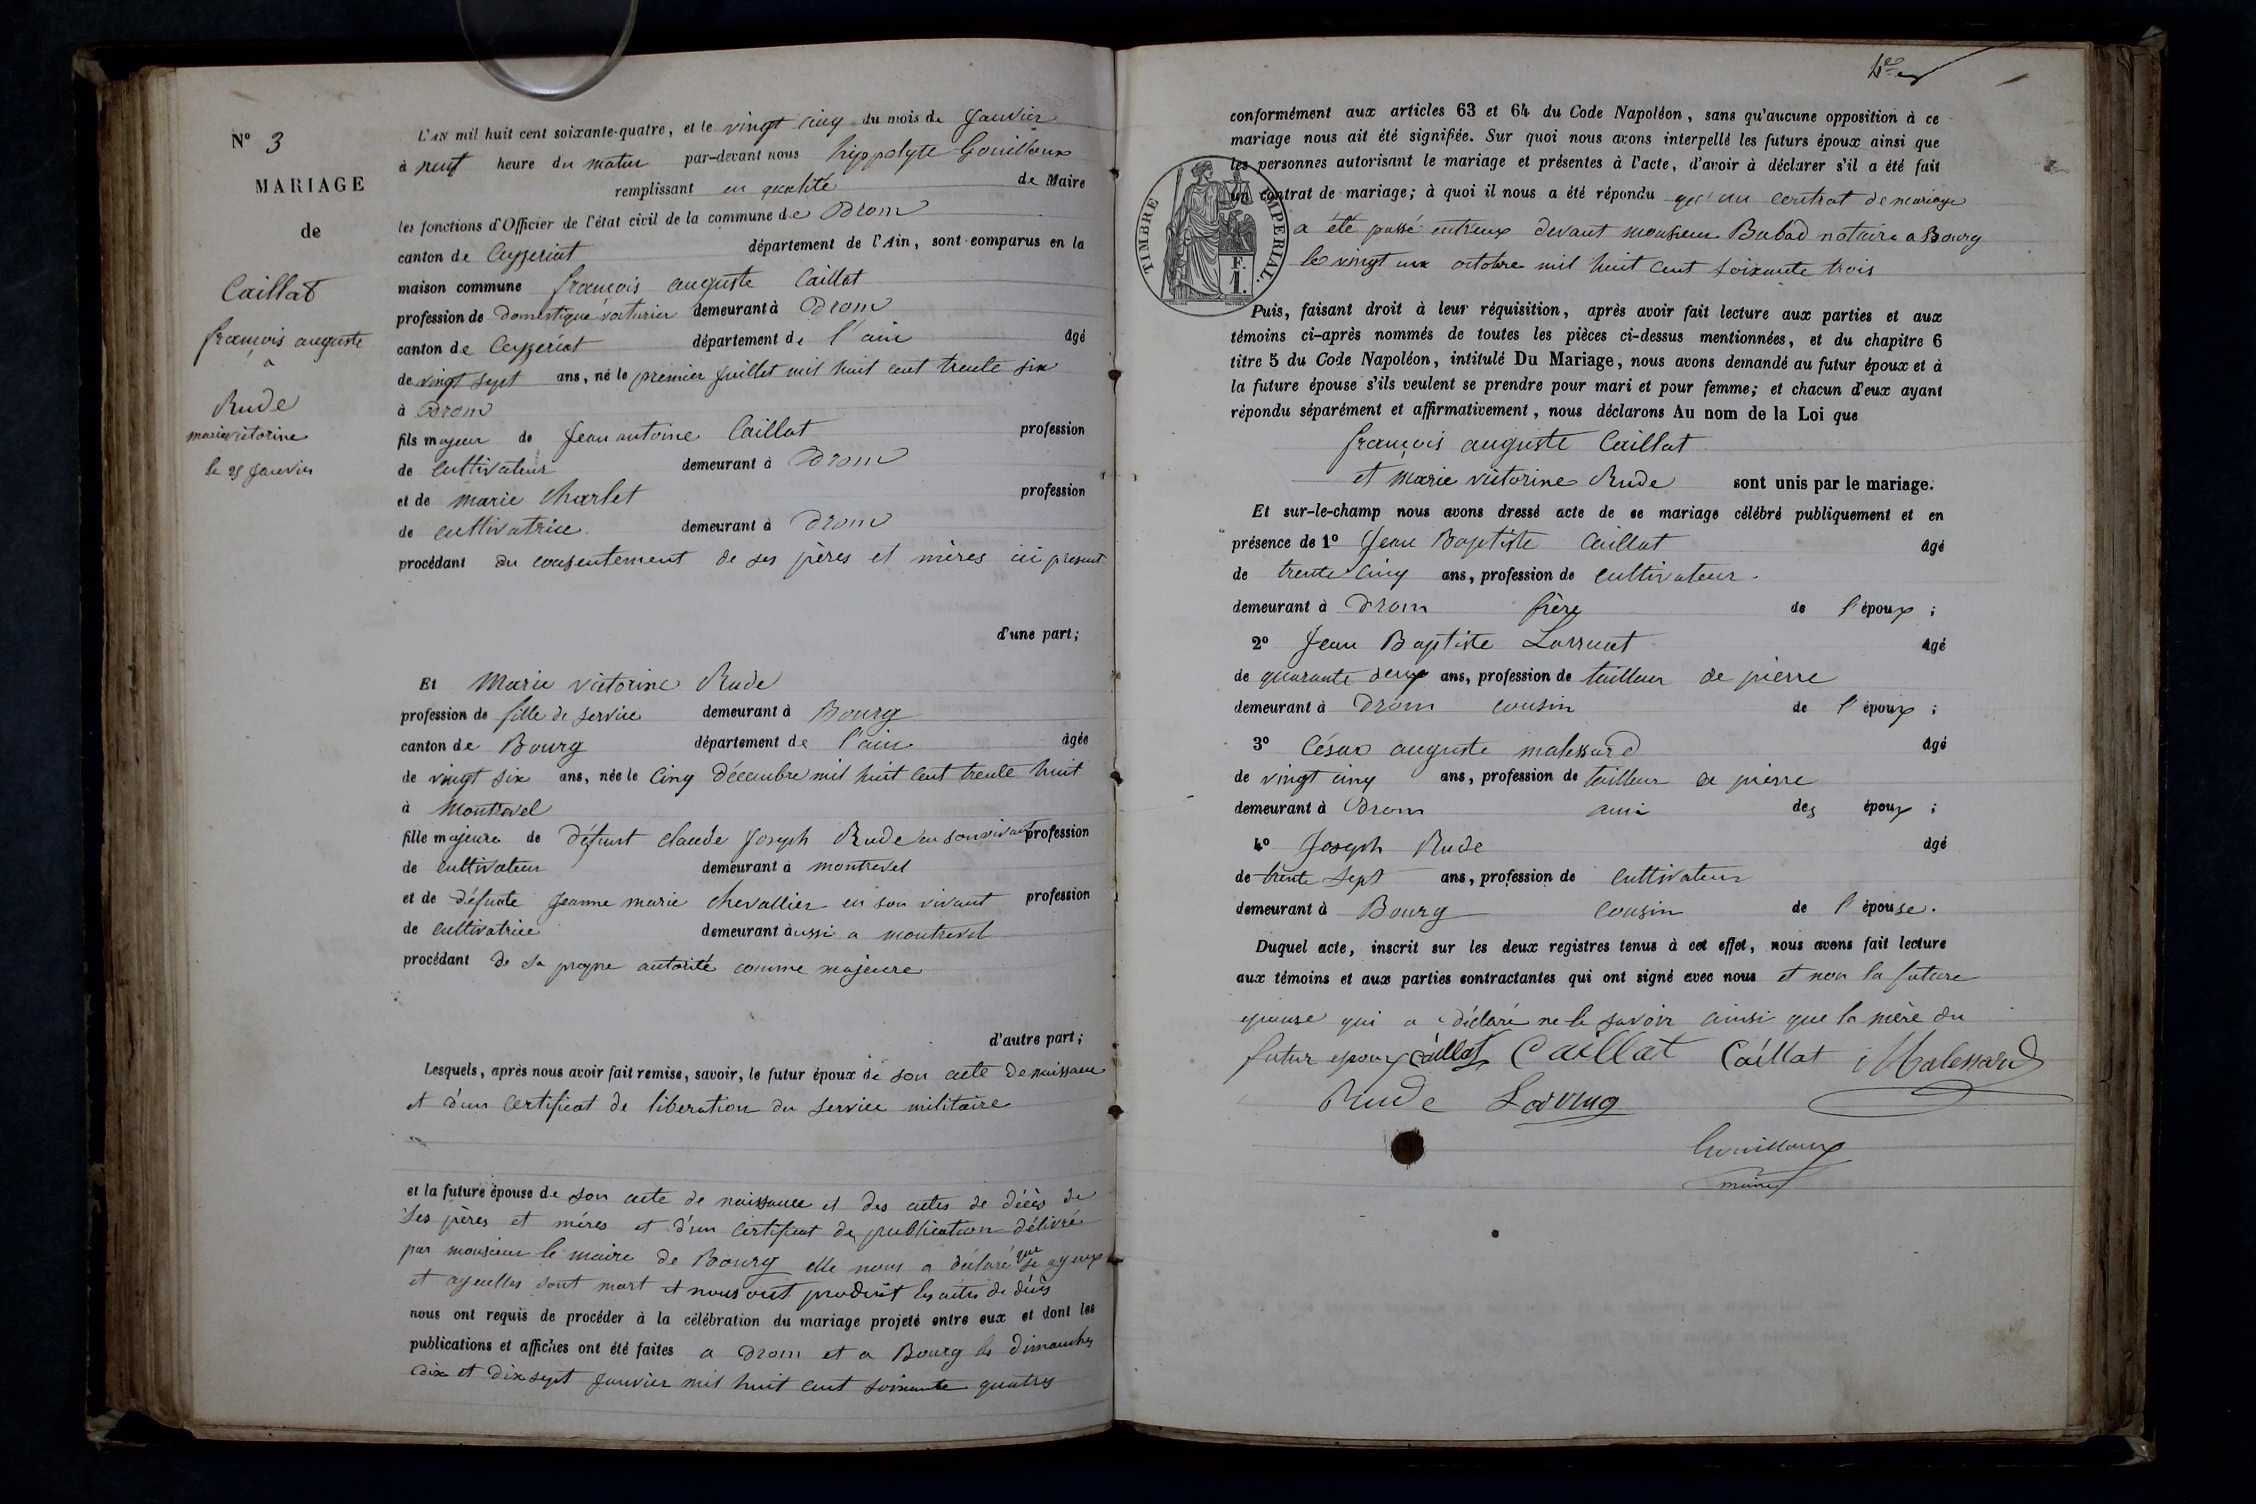 Nº 3
MARIAGE
de
Caillat
françois auguste
a
Rude
marie victorine
le 25 Janvier
L'AN mil huit cent soixante-quatre, et le vingt cinq du mois de Janvier
à neuf heure du matin par-devant nous hyppolyte Gouilloux
remplissant en qualité de Maire
les fonctions d'Officier de l'état civil de la commune de Drom
canton de Ceyzeriat département de l'Ain, sont comparus en la
maison commune françois auguste Caillat
profession de domestique voiturier demeurant à Drom
canton de Ceyzeriat département de l'ain âgé
de vingt sept ans, né le premier Juillet mil huit cent trente six
à Drom
fils majeur de Jean antoine Caillat profession
de cultivateur demeurant à Drom
et de marie charlet profession
de cultivatrice demeurant à Drom
procédant du consentement de ses pères et mères ici présent
d'une part;
Et Marie victorine Rude
profession de fille de service demeurant à Bourg
canton de Bourg département de l'ain âgée
de vingt six ans, née le Cinq Décembre mil huit cent trente huit
à Montrevel
fille majeure de défunt claude Joseph Rude en son vivant profession
de cultivateur demeurant à montrevel
et de défunte Jeanne marie chevallier en son vivant profession
de cultivatrice demeurant aussi a montrevel
procédant de sa propre autorité comme majeure
d'autre part;
Lesquels, après nous avoir fait remise, savoir, le futur époux de son acte de naissance
et d'un certificat de liberation du service militaire
et la future épouse de son acte de naissance et des actes de décès de
ses pères et mères et d'un certificat de publication délivré
par monsieur le maire de Bourg elle nous a déclaré que se ayeux
et ayeulles sont mort et nous ont produit les actes de décès
nous ont requis de procéder à la célébration du mariage projeté entre eux et dont les
publications et affiches ont été faites a Drom et a Bourg les dimanches
dix et dix sept Janvier mil huit cent soixante quatres
conformément aux articles 63 et 64 du Code Napoléon, sans qu'aucune opposition à ce
mariage nous ait été signifiée. Sur quoi nous avons interpellé les futurs époux ainsi que
les personnes autorisant le mariage et présentes à l'acte, d'avoir à déclarer s'il a été fait
un contrat de mariage; à quoi il nous a été répondu qu'un contrat de mariage
a été passé entreux devant monsieur Babad notaire a Bourg
le vingt un octobre mil huit cent soixante trois
TIMBRE IMPERIAL.
F.
1.
Puis, faisant droit à leur réquisition, après avoir fait lecture aux parties et aux
témoins ci-après nommés de toutes les pièces ci-dessus mentionnées, et du chapitre 6
titre 5 du Code Napoléon, intitulé Du Mariage, nous avons demandé au futur époux et à
la future épouse s'ils veulent se prendre pour mari et pour femme; et chacun d'eux ayant
répondu séparément et affirmativement, nous déclarons Au nom de la Loi que
françois auguste Caillat
et marie victorine Rude sont unis par le mariage.
Et sur-le-champ nous avons dressé acte de ce mariage célébré publiquement et en
présence de 1º Jean Baptiste Caillat âgé
de trente cinq ans, profession de cultivateur.
demeurant à Drom frère de l'époux ;
2º Jean Baptiste âgé
de quarante deux ans, profession de tailleur de pierre
demeurant à Drom cousin de l'époux ;
3º César auguste malessard âgé
de vingt cinq ans, profession de tailleur de pierre
demeurant à Drom ami des époux ;
4º Joseph Rude âgé
de trente sept ans, profession de cultivateur
demeurant à Bourg cousin de l'épouse.
Duquel acte, inscrit sur les deux registres tenus à cet effet, nous avons fait lecture
aux témoins et aux parties contractantes qui ont signé avec nous et non la future
epouse qui a déclaré ne le savoir ainsi que la mère du
futur epoux Caillat Caillat Caillat Malessard
Rude
Gouilloux
maire